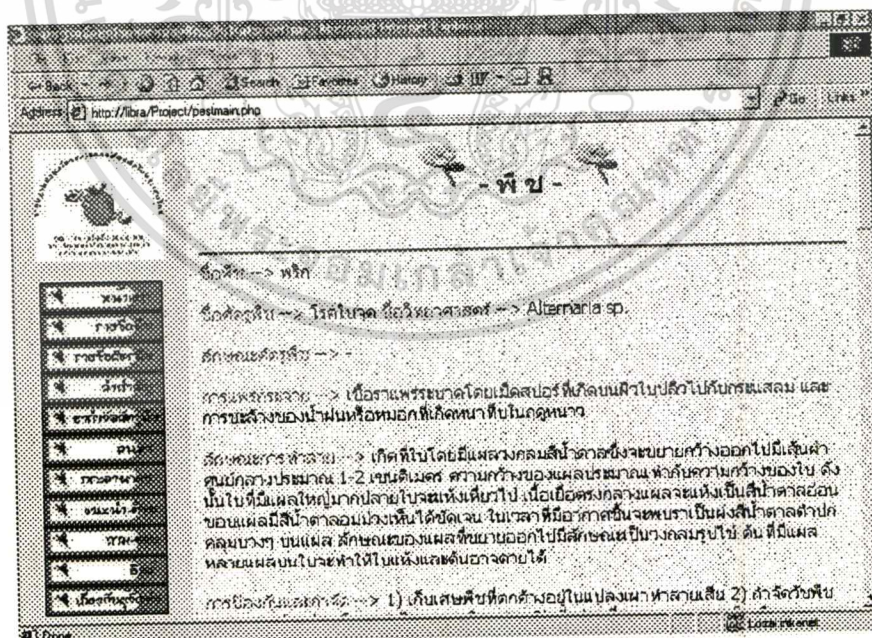 Back Search Favorites History
Address http://libra/Project/pestmain.php Go Links
- พืช -
ชื่อพืช --> พริก
ชื่อศัตรูพืช --> โรคใบจุด ชื่อวิทยาศาสตร์ --> Alternaria sp.
ลักษณะศัตรูพืช --> -
การแพร่กระจาย --> เชื้อราแพร่ระบาดโดยเม็ดสปอร์ที่เกิดบนผิวใบปลิวไปกับกระแสลม และ
การชะล้างของน้ำฝนหรือหมอกที่เกิดหนาทึบในฤดูหนาว
ลักษณะการทำลาย --> เกิดที่ใบโดยมีแผลวงกลมสีน้ำตาลซึ่งจะขยายกว้างออกไปมีเส้นผ่า
ศูนย์กลางประมาณ 1-2 เซนติเมตร ความกว้างของแผลประมาณเท่ากับความกว้างของใบ ดัง
นั้นใบที่มีแผลใหญ่มากปลายใบจะแห้งเหี่ยวไป เนื้อเยื่อตรงกลางแผลจะแห้งเป็นสีน้ำตาลอ่อน
ขอบแผลมีสีน้ำตาลอมม่วงเห็นได้ชัดเจน ในเวลาที่มีอากาศชื้นจะพบราเป็นผงสีน้ำตาลดำปก
คลุมบางๆ บนแผล ลักษณะของแผลที่ขยายออกไปมีลักษณะเป็นวงกลมรูปไข่ ต้นที่มีแผล
หลายแผลบนใบจะทำให้ใบแห้งและต้นอาจตายได้
การป้องกันและกำจัด --> 1) เก็บเศษพืชที่ตกค้างอยู่ในแปลงเผาทำลายเสีย 2) กำจัดวัชพืช
Done Local intranet